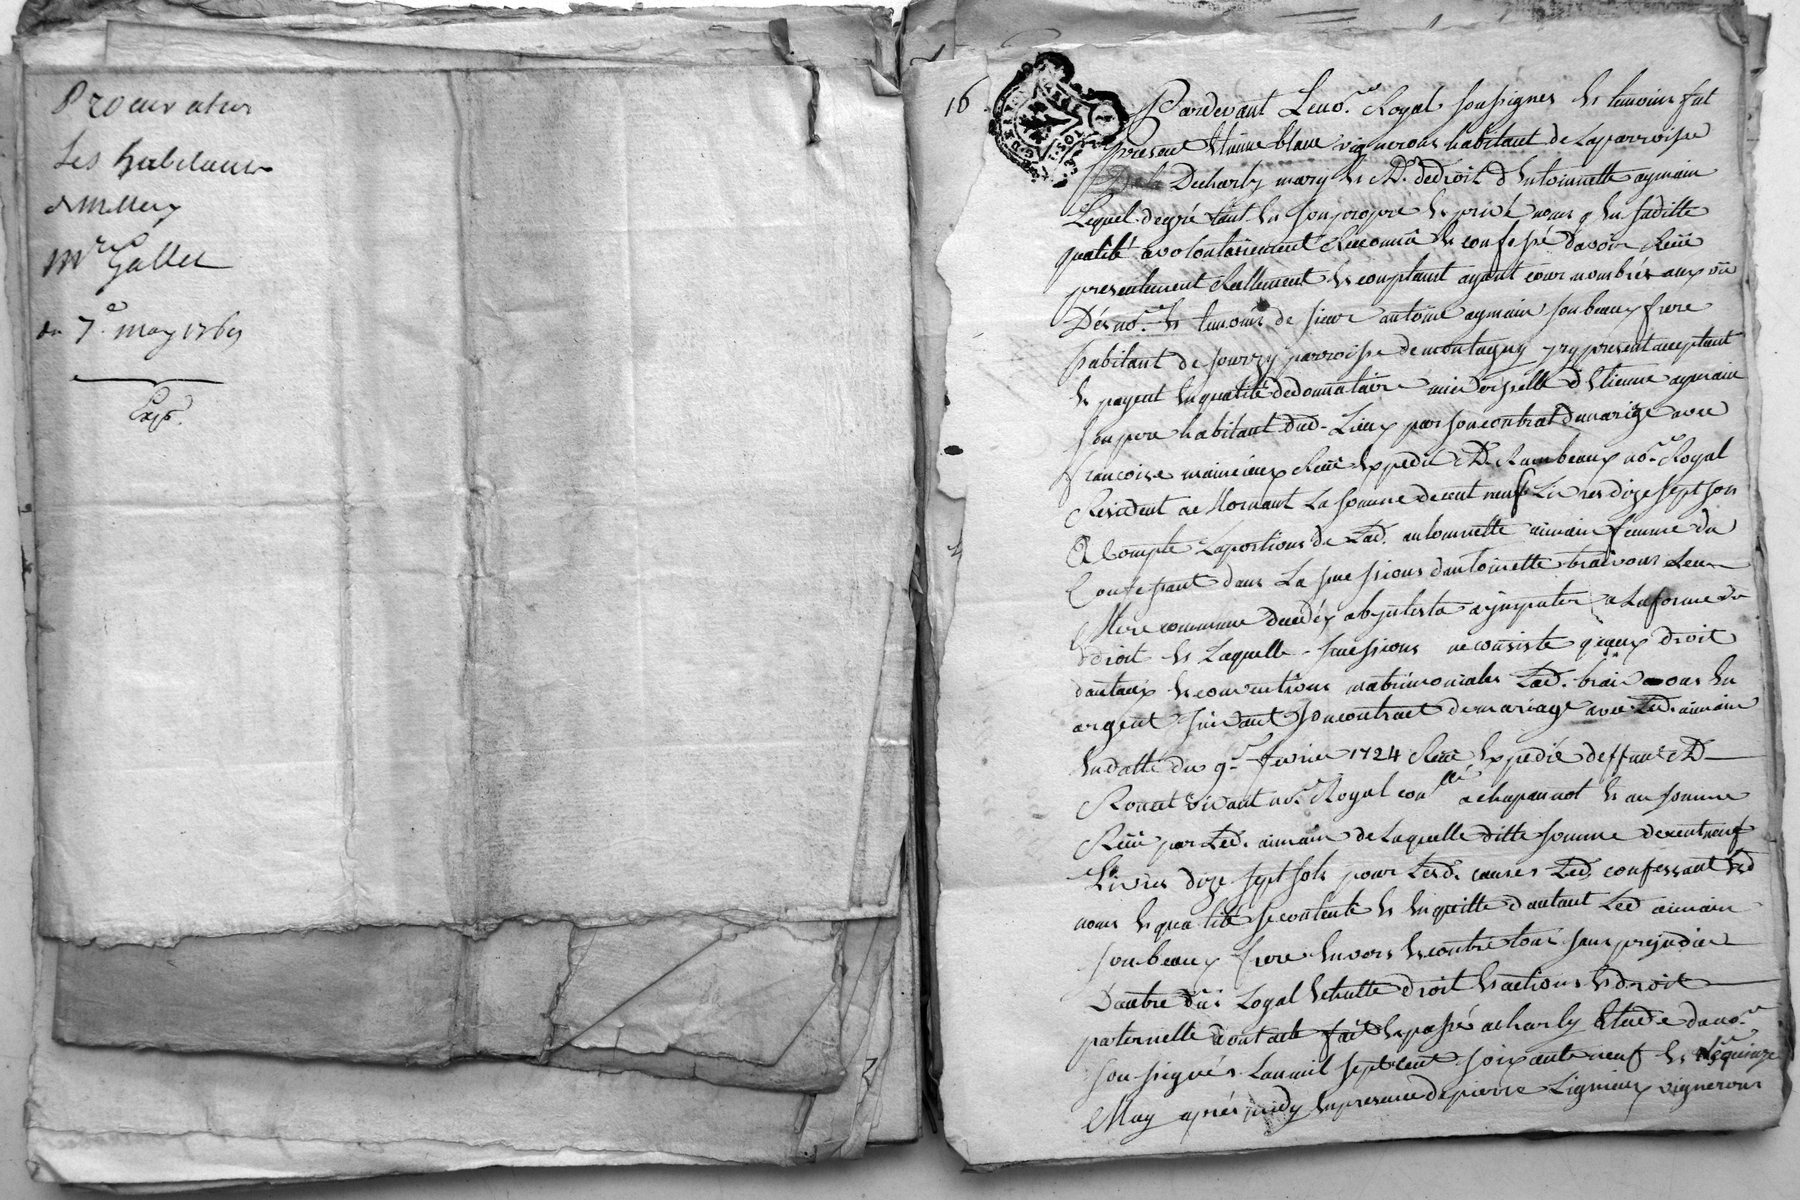 Procuration
Les habitants
de Millery
Mr Gallet
du 7e. may 1769
Exp.
16
Pardevant Le no.re Royal soussignes & temoins fut
present Etienne blanc vigneron habitant de La parroisse
De charly mary & M.e de droit d'Entoinnette aymain
Lequel de gré tant En son propre & privé nom q En saditte
qualité a volontairement Reconnu & confessé d'avoir Receu
presentement Reellement & comptant ayant eour nombrés aux vü
Des no.re & temoins de sieur antoine aymain son beaux frere
habitant de sourzy parroisse de montagny yçy present acceptant
& payent En qualité de donnataire universelle d'Etienne aymain
son pere habitant dud. Lieux par son contrat de mariage avec
francoise mainieux Receu Expedié M.e Rambeaux no.re Royal
Resident a Mornant La somme de cent neuf Livres dize sept sols
A Compte La portions de Lad. antoinnette aimain femme du
Confessant dans La suessions d'antoinette braivons Leur
Mere commune decedéz abjntesta a jmputer a La forme du
droit & Laquelle suessions ne consiste q'eaux droit
dautaux & conventions matrimoniales Lad. braivons En
argent suivant son contract de mariage avec Led. aimain
En datte du 9.e fevrier 1724 Receu Expedié deffunt M.e
vivant no.re Royal a chapannot & au somme
Receu par Led. aimain de Laquelle ditte somme de cent neuf
Livres dize sept sols pour Lesd. causes Led. confessant Esd
noms & qualité se contente & En quitte d'autant Led aimain
son beaux frere Envers & contre tous sans prejudice
D'autre düe Logal & tutte droit & actions & droit
paternelle dont acte fait & passé a charly Etude du no.re
soussignés Lan mil sept cent soixante neuf & Le quinze
May après midy En presence de pierre Lignieux vigneron